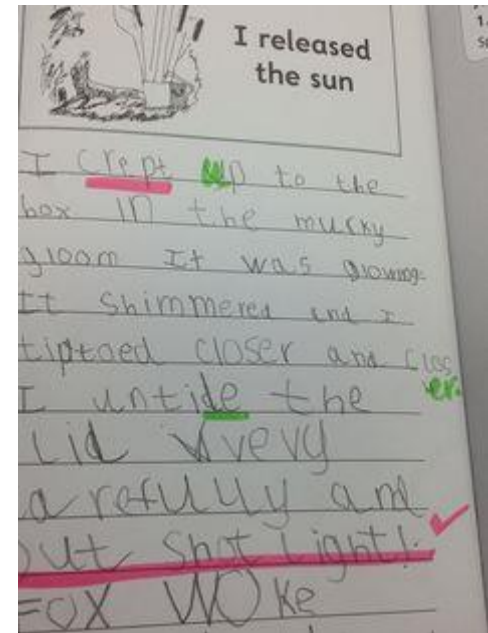 I released
the sun
1.
I crept up to the
box in the murky
gloom It was glowing.
It shimmered and I
tiptoed closer and clos
er.
I untide the
Lid vvevy
arefully and
out shot light!
Fox woke